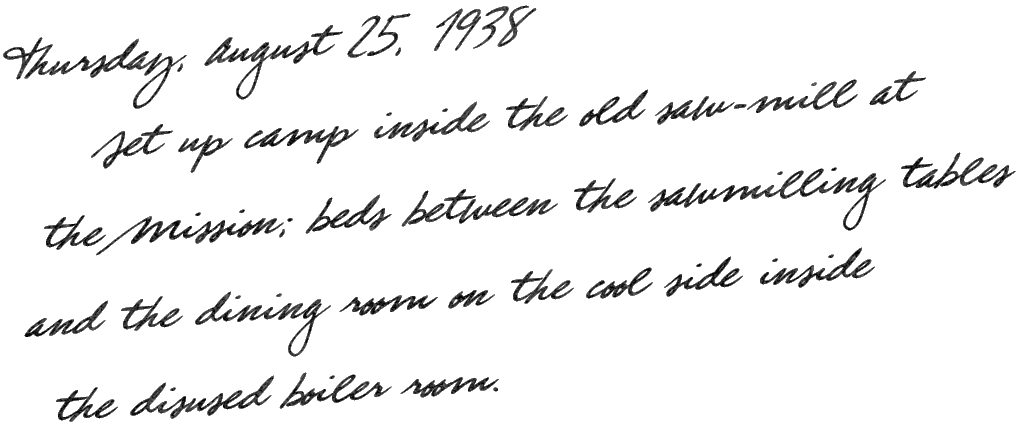 Thursday, August 25, 1938
Set up camp inside the old saw-mill at
the Mission; beds between the sawmilling tables
and the dining room on the cool side inside
the disused boiler room.